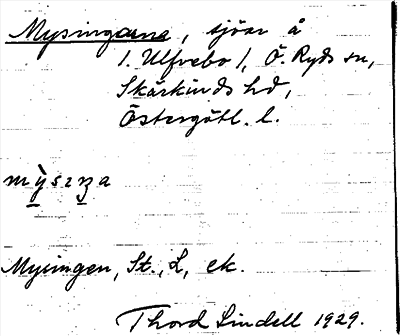 Mysingarna, sjöar å
1. Ulfvebo /, Ö. Ryds sn,
Skärkinds hd,
Östergötl. l.
Mysingen, St., L, ek.
Thord Lindell 1929.